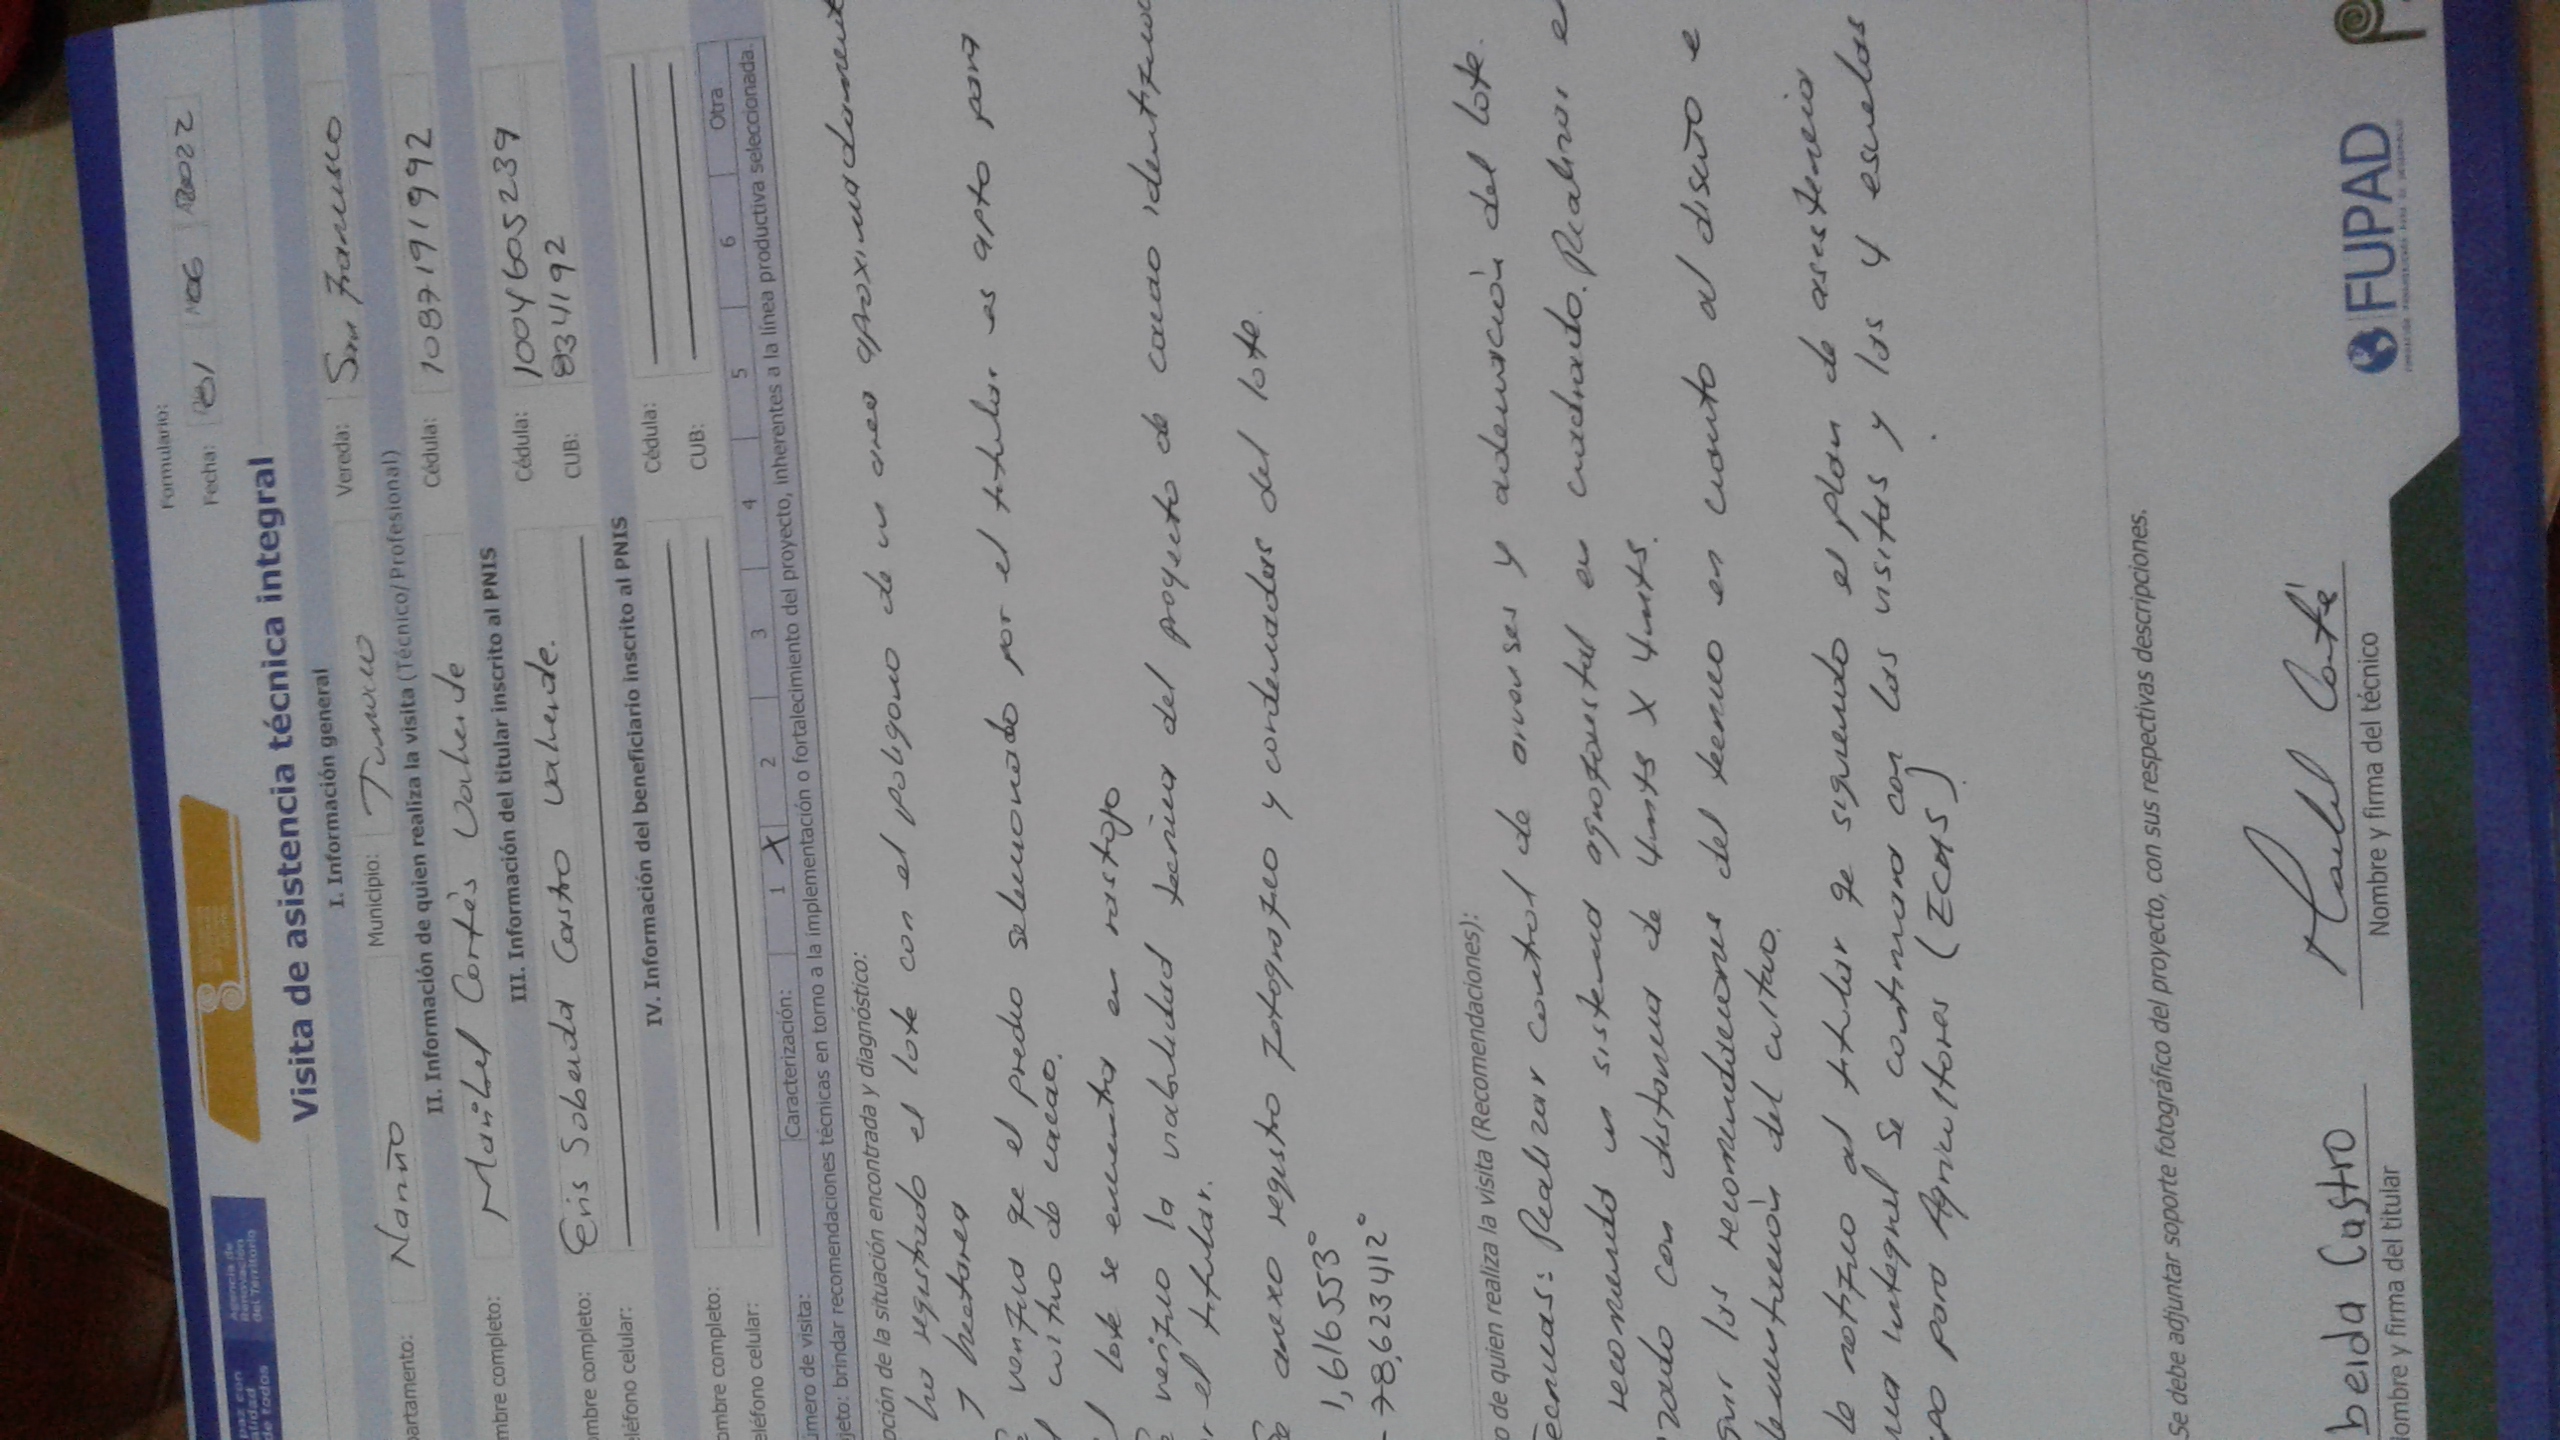 Formulario:
Fecha:
paz con
alidad
de todos
Agencia de
Renovación
del Territorio
Visita de asistencia técnica integral
I. Información general
partamento: Nariño Municipio: Tumaco Vereda: San Francisco
II. Información de quien realiza la visita (Técnico/Profesional)
mbre completo: Maribel Cortés Valverde Cédula: 1087191992
III. Información del titular inscrito al PNIS
mbre completo: Eris Sobeida Castro Valverde. Cédula: 1004605239
eléfono celular: CUB: 8341192
IV. Información del beneficiario inscrito al PNIS
ombre completo: Cédula:
eléfono celular: CUB:
úmero de visita: Caracterización: 1 X 2 3 4 5 6 Otra
jeto: brindar recomendaciones técnicas en torno a la implementación o fortalecimiento del proyecto, inherentes a la línea productiva seleccionada.
pción de la situación encontrada y diagnóstico:
ha registrado el lote con el poligono de un area aproximadament
hectarea
verifico qe el predio seleccionado por el titular es apto para
l cultivo de cacao.
l lote se encuentra en rastrojo
verifico la viabilidad tecnica del proyecto de cacao identificado
r el titular.
anexo registro fotografico y cordenadas del lote.
1,616553°
- 78,623412°
o de quien realiza la visita (Recomendaciones):
ecnicas: Realizar control de arvenses y adecuación del lote.
recomienda un sistema agroforestal en cuadrado. Realizar e
zado con distancia de 4mts X 4mts.
guir las recomendaciones del tecnico en cuanto al diseño e
lementación del cultivo.
le notifico al titular qe siguiendo el plan de asistencia
nica integral se continuara con las visitas y las 4 escuelas
po para Agricultores (ECAS)
Se debe adjuntar soporte fotográfico del proyecto, con sus respectivas descripciones.
beida Castro
ombre y firma del titular
Maribel Corté
Nombre y firma del técnico
FUPAD